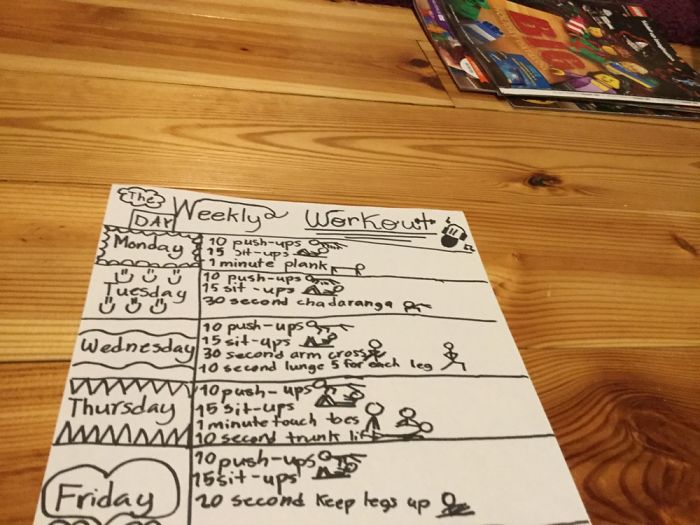 The
DAY
Weekly Workout
Monday
10 push-ups
15 sit-ups
1 minute plank
Tuesday
10 push-ups
15 sit-ups
30 second chadaranga
Wednesday
10 push-ups
15 sit-ups
30 second arm cross
10 second lunge 5 for each leg
Thursday
10 push-ups
15 sit-ups
1 minute touch toes
10 second trunk lif
Friday
10 push-ups
15 sit-ups
20 second keep legs up
BIG